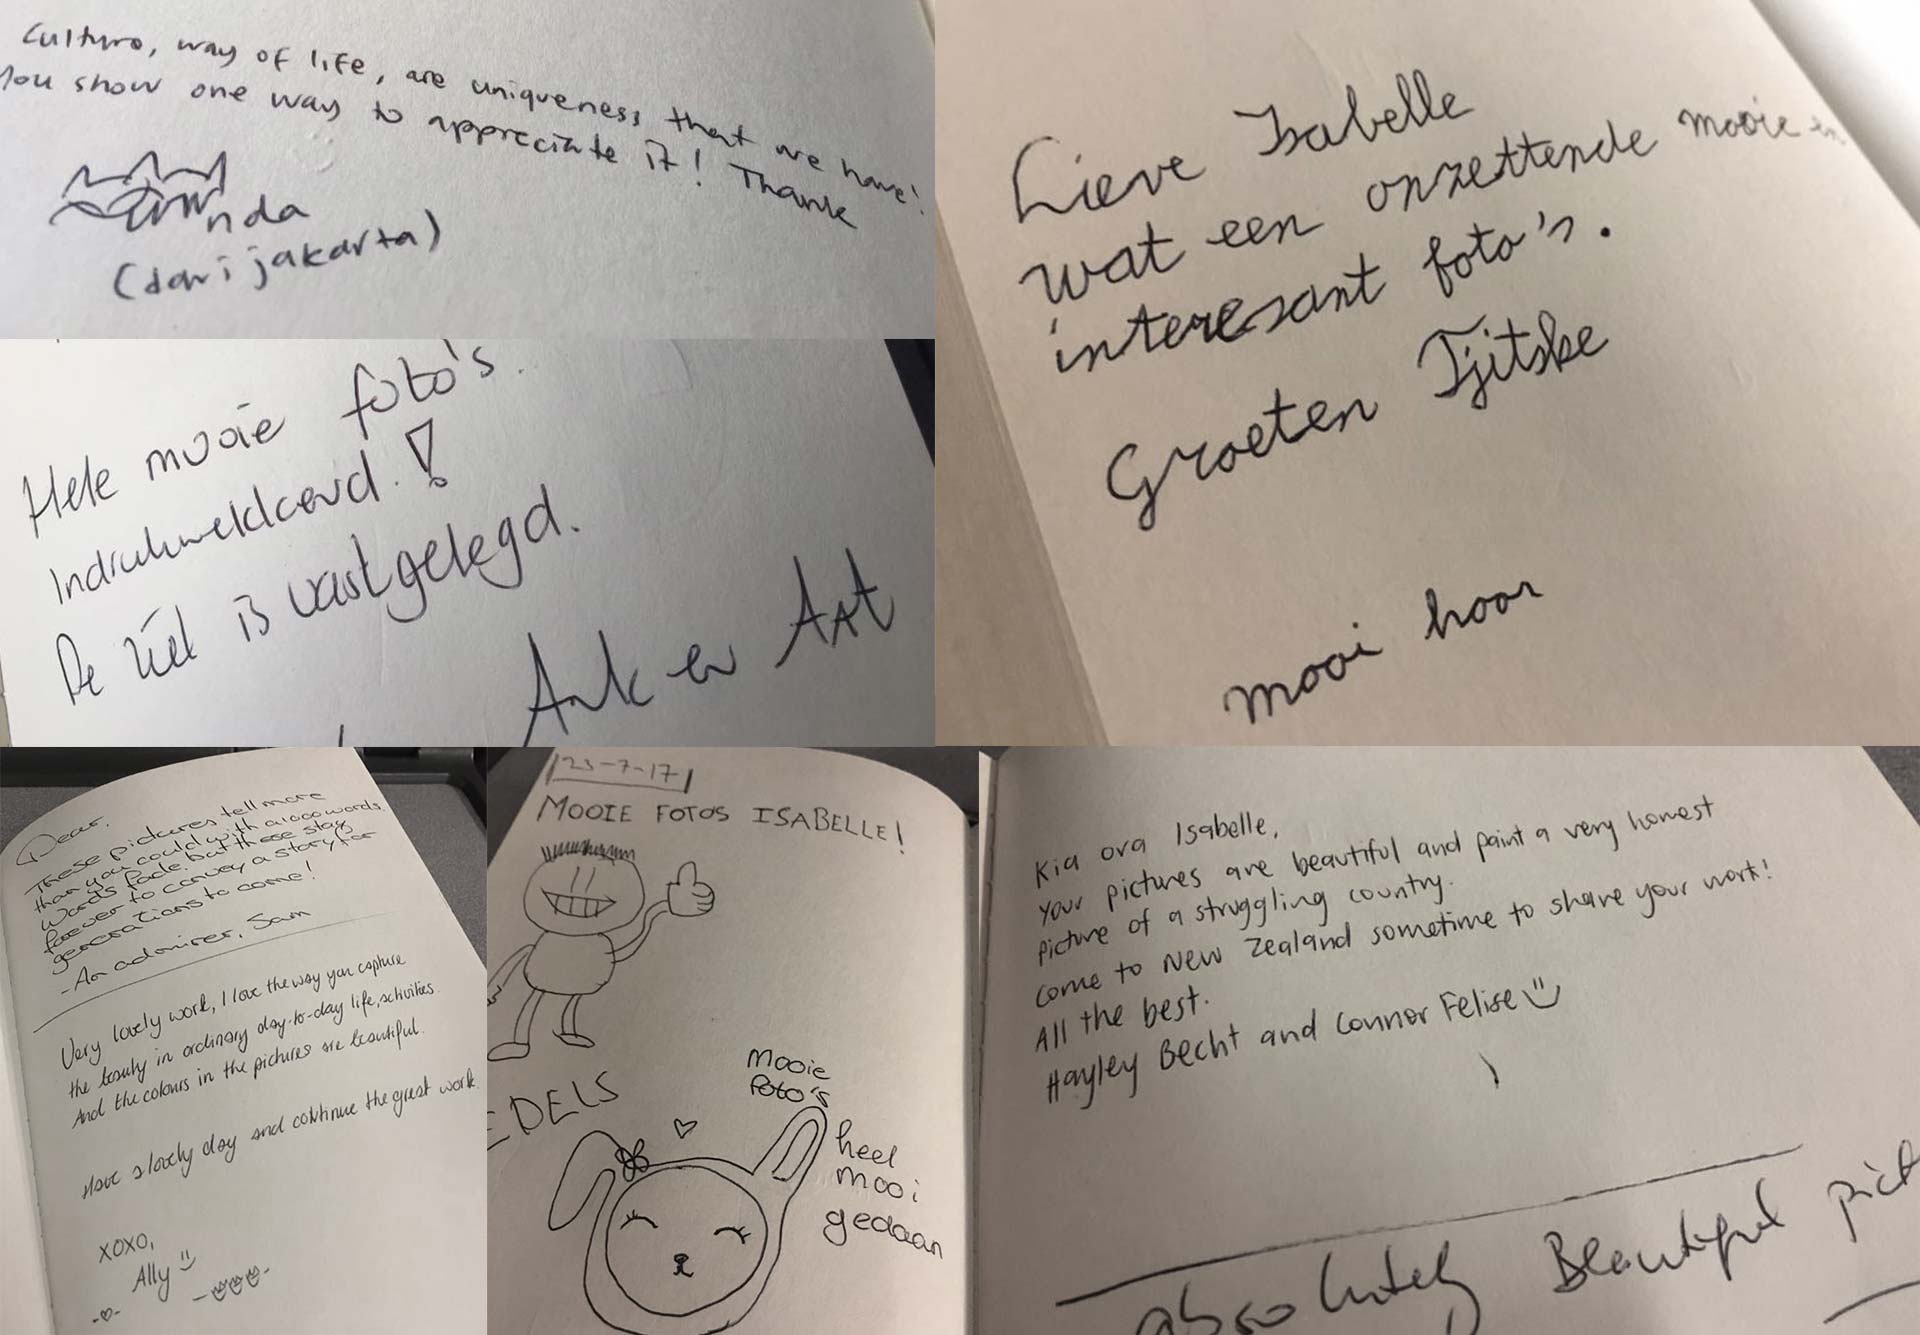 Culture, way of life, are uniqueness that we have!
You show one way to appreciate it! Thank
nda
(dari jakarta)
Hele mooie foto's.
Indrukwekkend!
De ziel is vastgelegd.
Ank en Aat
Lieve Isabelle
wat een onzettende mooie en
interesant foto's.
Groeten Tjitske
mooi hoor
Dear,
These pictures tell more
than you could with a 1000 words.
Words fade, but these stay
forever to convey a story for
generations to come!
- An admirer, Sam
Very lovely work, I love the way you capture
the beauty in ordinary day-to-day life, activities.
And the colours in the pictures are beautiful.
Have a lovely day and continue the great work.
XOXO,
Ally
23-7-17
MOOIE FOTOS ISABELLE!
EDELS
Mooie
foto's
heel
mooi
gedaan
Kia ora Isabelle,
Your pictures are beautiful and paint a very honest
picture of a struggling country.
Come to New Zealand sometime to share your work!
All the best.
Hayley Becht and Connor Felise
absolutely Beautiful pict